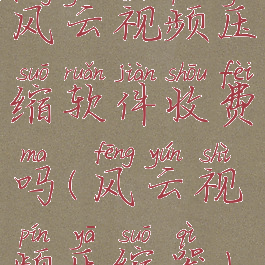 风云视频压
suō ruǎn jiàn shōu fèi
缩软件收费
ma fēng yún shì
吗(风云视
pín yā suō qì
频压缩器)